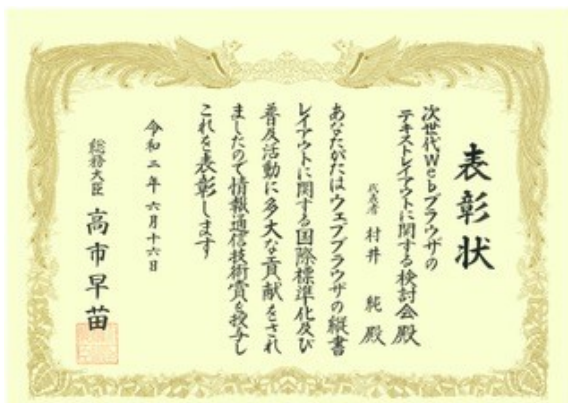 表彰状
次世代Webブラウザの
テキストレイアウトに関する検討会 殿
代表者 村井 純 殿
あなたがたはウェブブラウザの縦書
レイアウトに関する国際標準化及び
普及活動に多大な貢献をされ
ましたので情報通信技術賞を授与し
これを表彰します
令和二年六月十六日
総務大臣 高市早苗